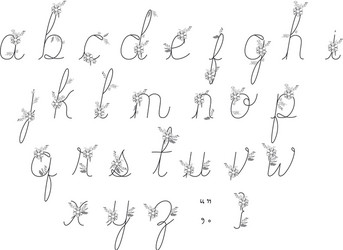 a b c d e f g h i
j k l m n o p
q r s t u v w
x y z “” ; }